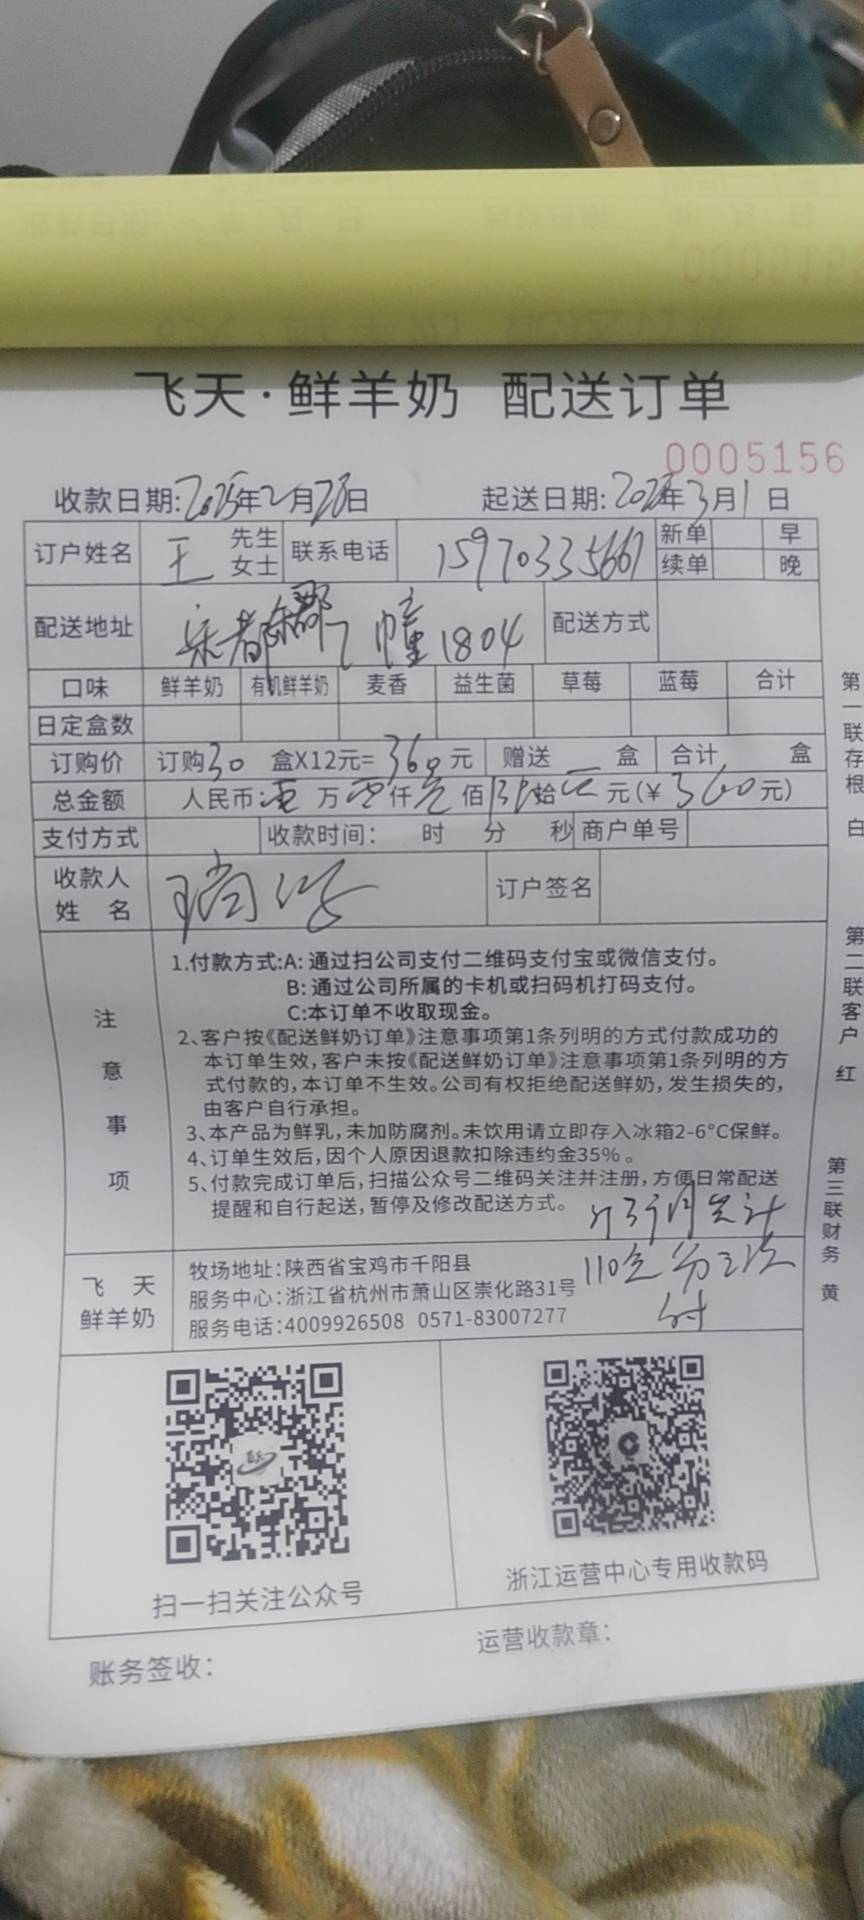 飞天·鲜羊奶 配送订单
0005156
收款日期:2025年2月28日 起送日期:2025年3月1日
订户姓名 王 先生 女士 联系电话 15970335667 新单 早 续单 晚
配送地址 1804 配送方式
口味 鲜羊奶 有机鲜羊奶 麦香 益生菌 草莓 蓝莓 合计
日定盒数
订购价 订购30 盒X12元=360元 赠送 盒 合计 盒
总金额 人民币: 万 仟 佰 拾 元(¥360元)
支付方式 收款时间: 时 分 秒 商户单号
收款人 姓 名 订户签名
注意事项
1.付款方式:A: 通过扫公司支付二维码支付宝或微信支付。
B: 通过公司所属的卡机或扫码机打码支付。
C:本订单不收取现金。
2、客户按《配送鲜奶订单》注意事项第1条列明的方式付款成功的
本订单生效,客户未按《配送鲜奶订单》注意事项第1条列明的方
式付款的,本订单不生效。公司有权拒绝配送鲜奶,发生损失的,
由客户自行承担。
3、本产品为鲜乳,未加防腐剂。未饮用请立即存入冰箱2-6°C保鲜。
4、订单生效后,因个人原因退款扣除违约金35%。
5、付款完成订单后,扫描公众号二维码关注并注册,方便日常配送
提醒和自行起送,暂停及修改配送方式。
3个月共计
分三次
付
飞 天
鲜羊奶
牧场地址:陕西省宝鸡市千阳县
服务中心:浙江省杭州市萧山区崇化路31号
服务电话:4009926508 0571-83007277
扫一扫关注公众号
浙江运营中心专用收款码
账务签收:
运营收款章:
第一联存根 白
第二联客户 红
第三联财务 黄